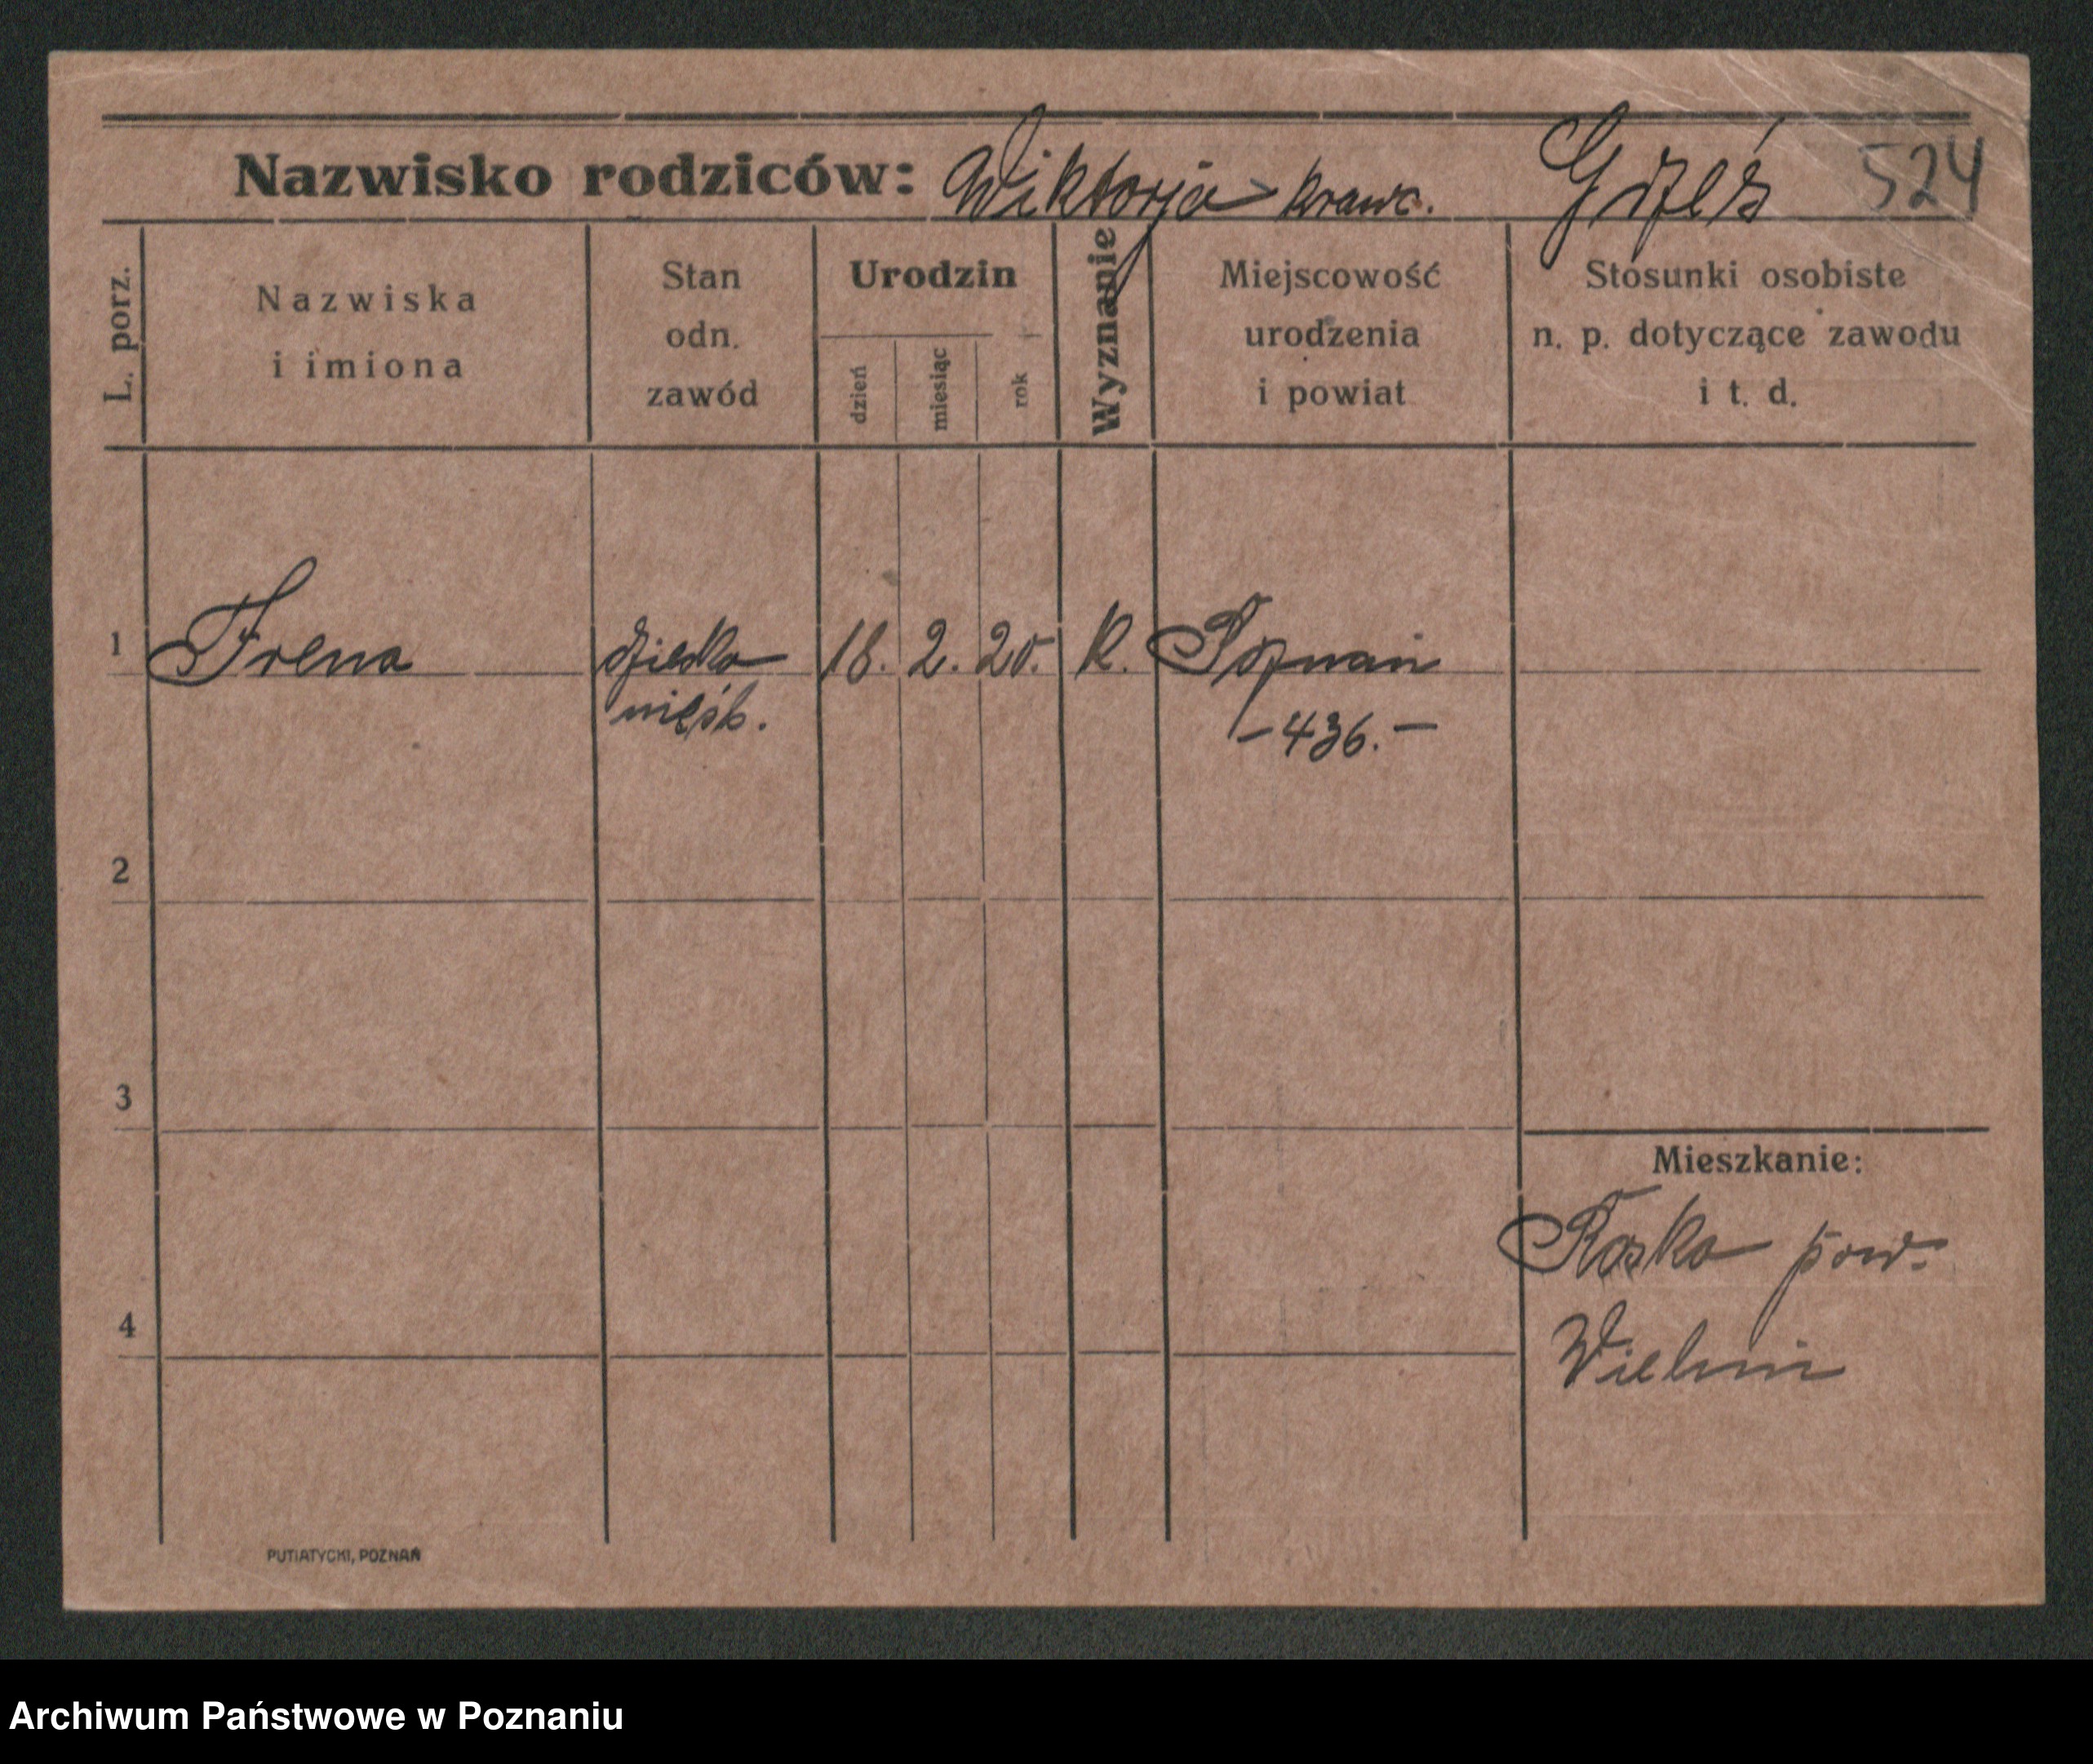 Nazwisko rodziców: Wiktorja krawc. Grześ 524
L. porz.
Nazwiska
i imiona
Stan
odn.
zawód
Urodzin
dzień
miesiąc
rok
Wyznanie
Miejscowość
urodzenia
i powiat
Stosunki osobiste
n. p. dotyczące zawodu
i t. d.
1 Irena dziecko 18. 2. 20. K. Poznań
-436.-
2
3
Mieszkanie:
pow.
4
Wieluń
PUTIATYCKI, POZNAŃ
Archiwum Państwowe w Poznaniu